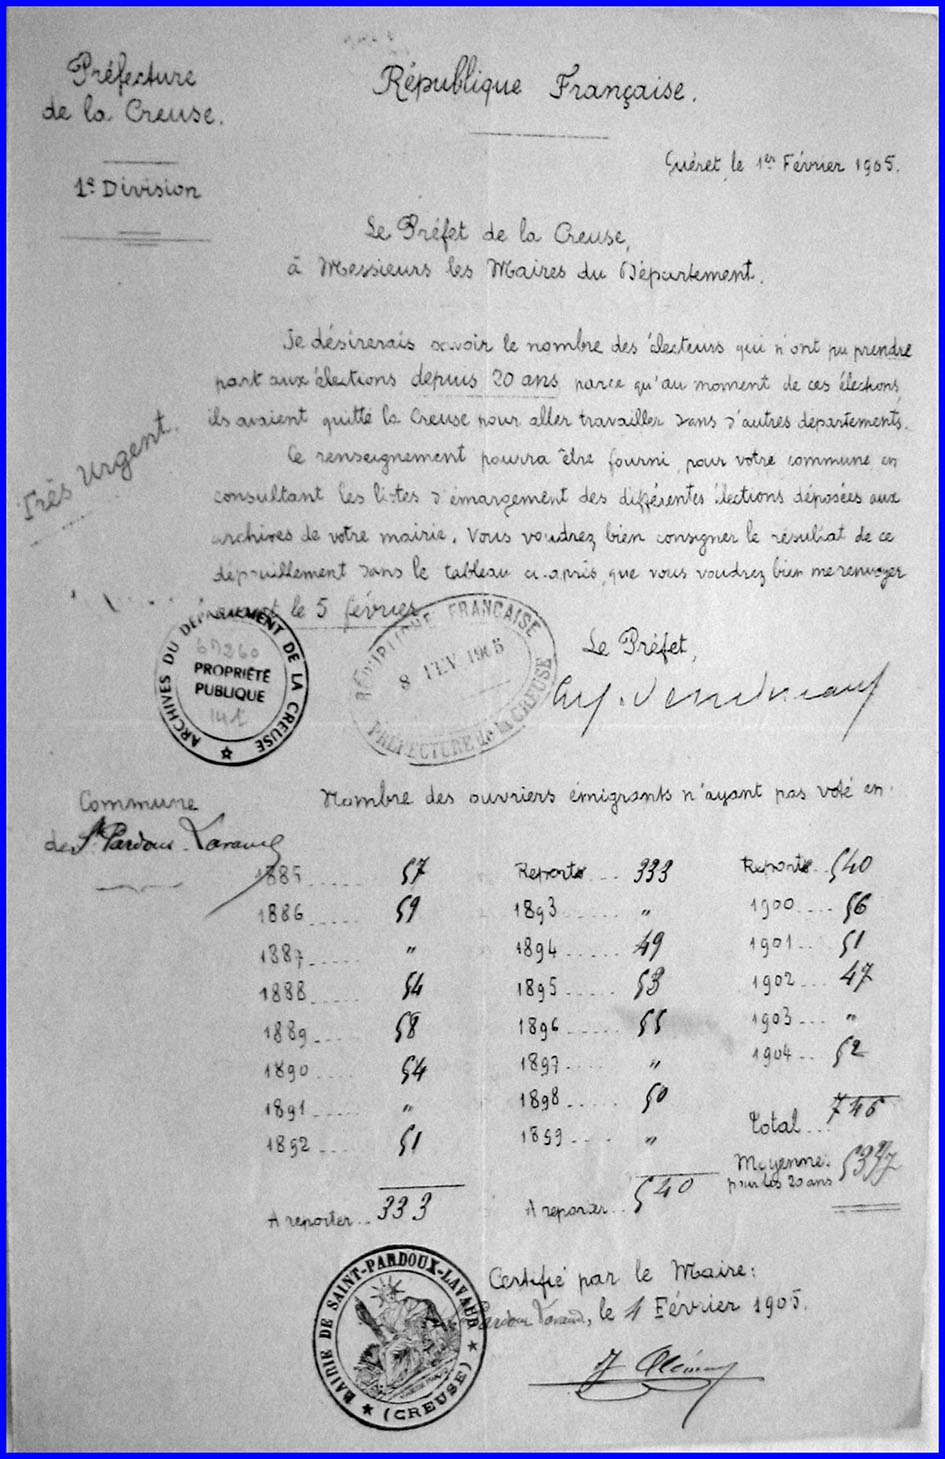 Préfecture
de la Creuse.
1e Division
République Française.
Guéret, le 1er Février 1905.
Le Préfet de la Creuse,
à Messieurs les Maires du Département.
Très Urgent.
Je désirerais savoir le nombre des électeurs qui n'ont pu prendre
part aux élections depuis 20 ans parce qu'au moment de ces élections,
ils avaient quitté la Creuse pour aller travailler dans d'autres départements.
Ce renseignement pourra être fourni, pour votre commune en
consultant les listes d'émargement des différentes élections déposées aux
archives de votre mairie. Vous voudrez bien consigner le résultat de ce
dépouillement dans le tableau ci-après, que vous voudrez bien me renvoyer
le 5 février
ARCHIVES DU DÉPARTEMENT DE LA CREUSE
PROPRIÉTÉ
PUBLIQUE
RÉPUBLIQUE FRANÇAISE
8 FEV 1905
PRÉFECTURE de la CREUSE
Le Préfet,
Commune
de St Pardoux-Lavaud
Nombre des ouvriers émigrants n'ayant pas voté en:
1885 ..... 57
1886 ..... 59
1887 ..... "
1888 ..... 54
1889 .... 58
1890 .... 54
1891 ..... "
1892 ..... 51
A reporter .. 333
Report ... 333
1893 ..... "
1894 ..... 49
1895 ..... 53
1896 ..... 55
1897 ..... "
1898 ..... 50
1899 .... "
A reporter .. 540
Report .. 540
1900 .... 56
1901 ... 51
1902 ... 47
1903 ... "
1904 .. 52
Total ... 746
Moyenne:
pour les 20 ans
MAIRIE DE SAINT-PARDOUX-LAVAUD
(CREUSE)
Certifié par le Maire:
Pardoux Lavaud, le 4 Février 1905.